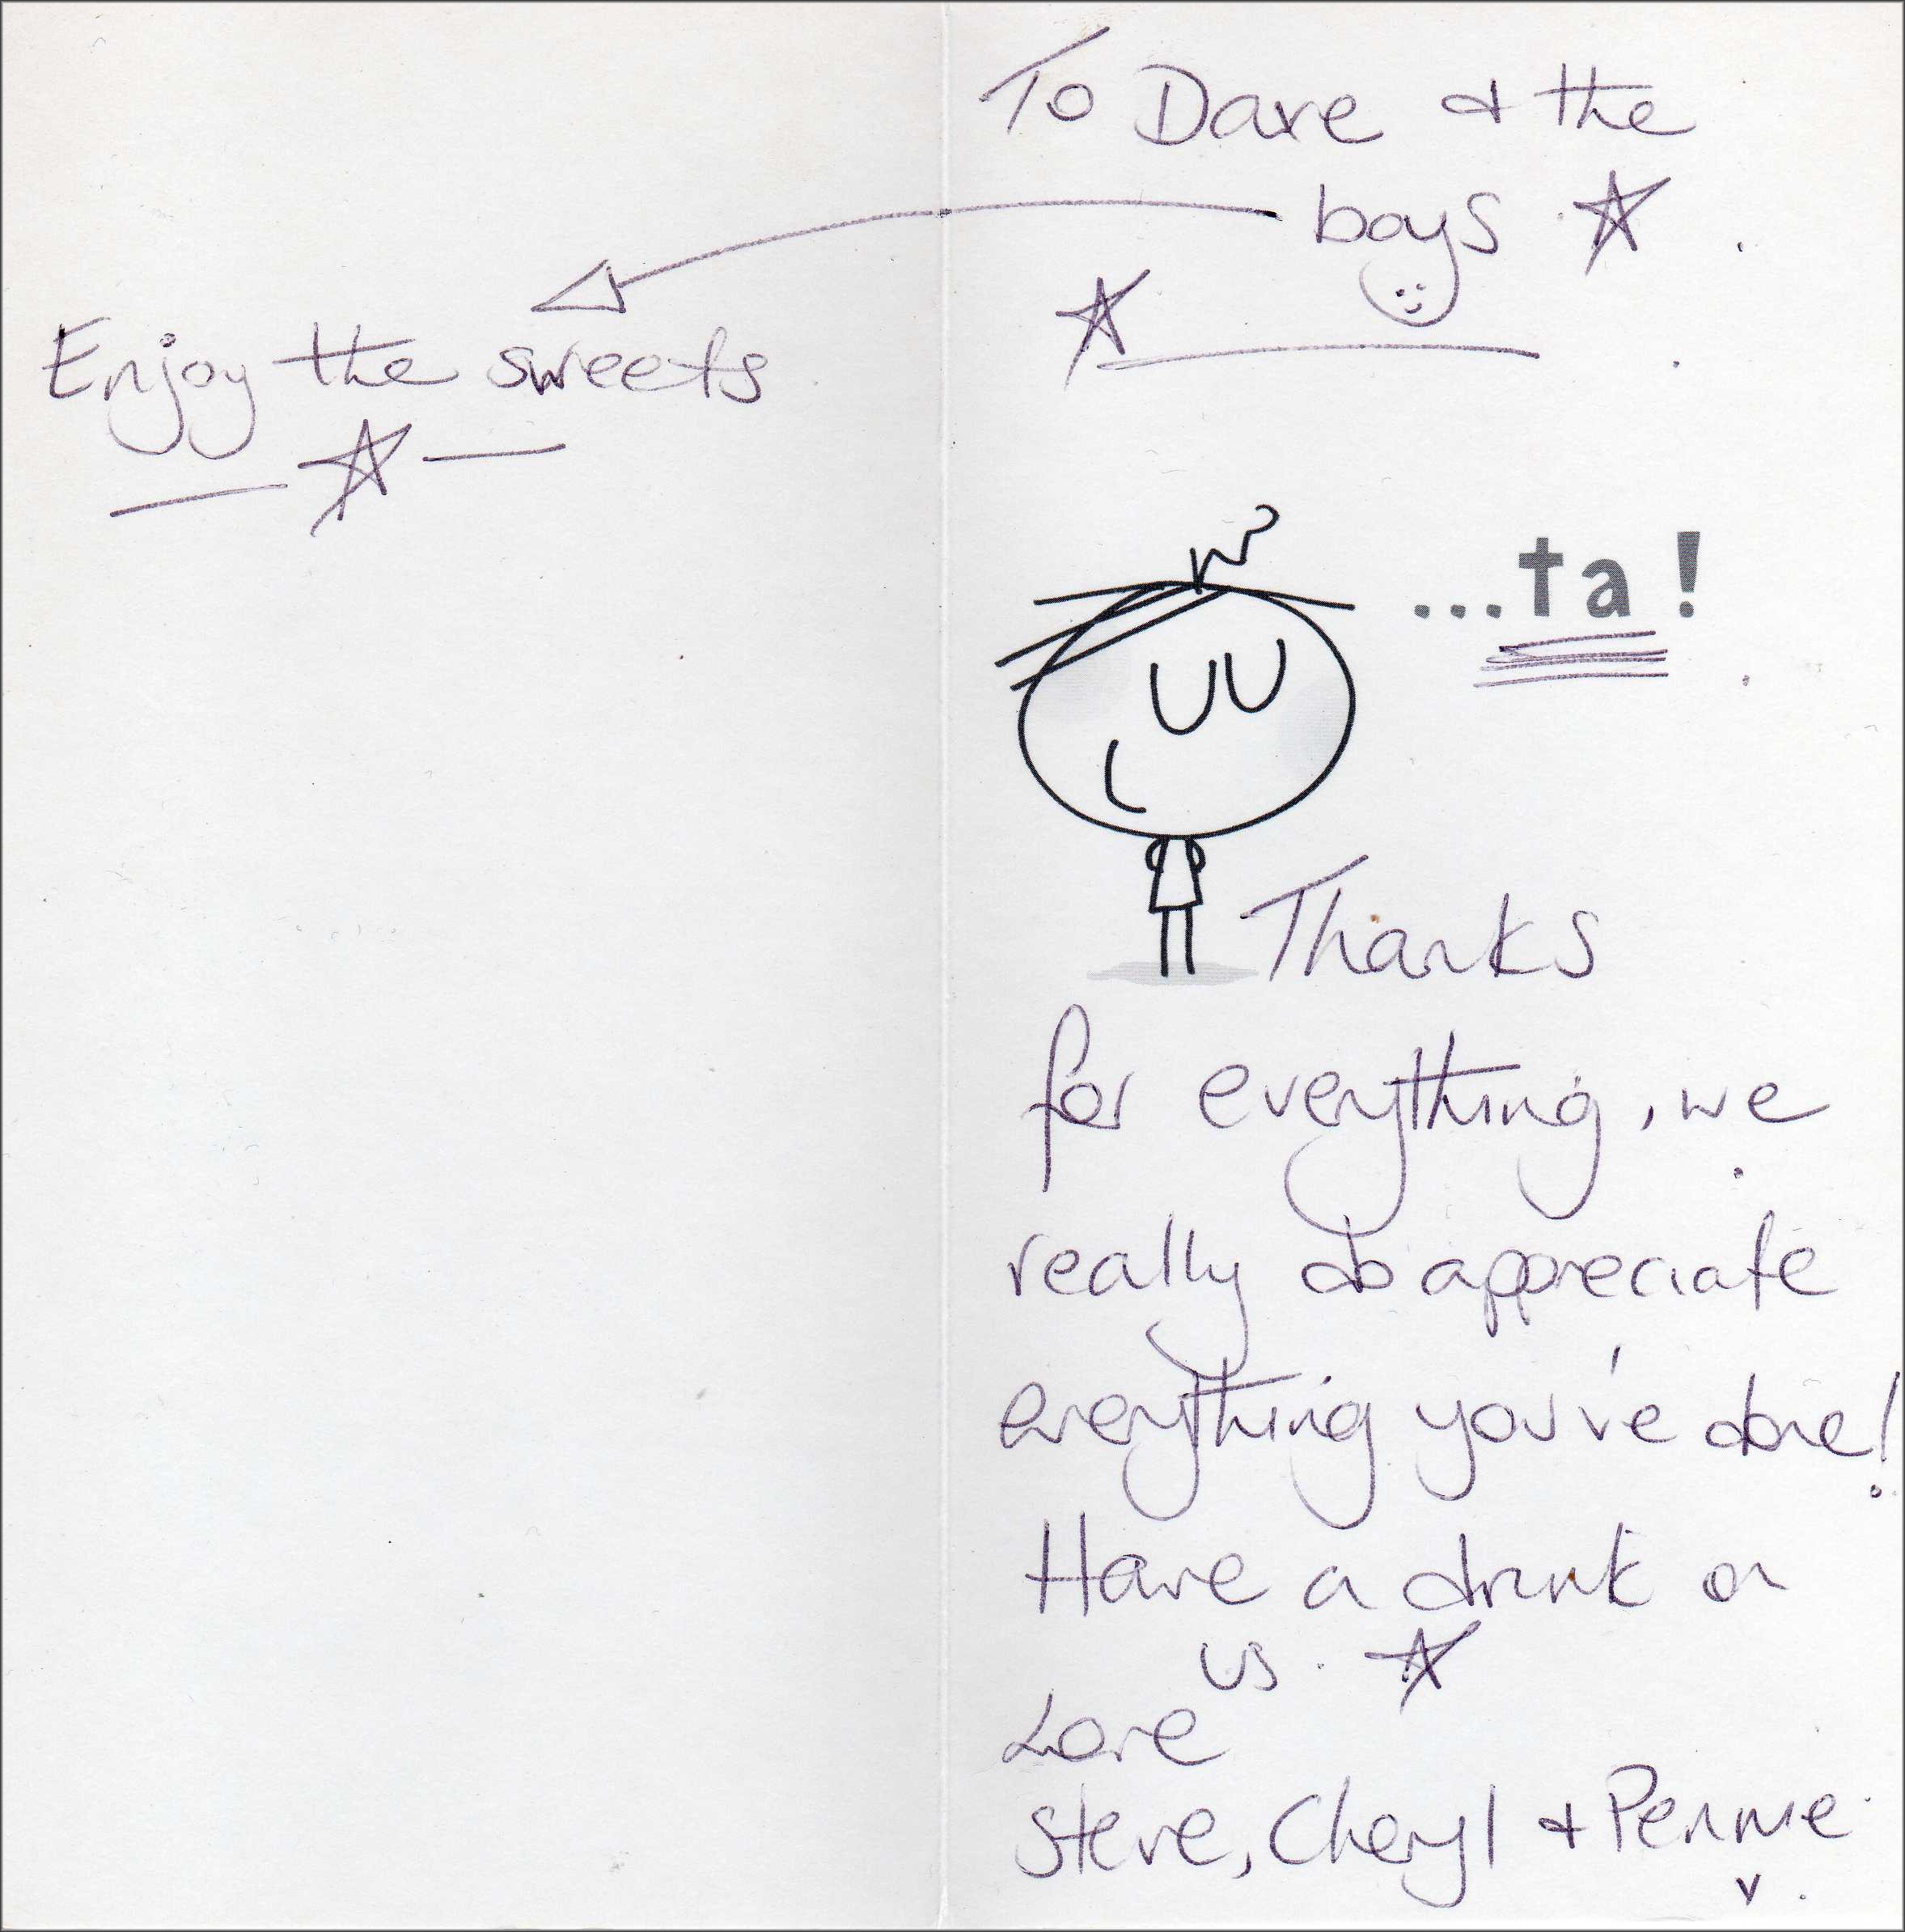 To Dave & the
boys
Enjoy the sweets
...ta!
Thanks
for everything, we
really do appreciate
everything you've done!
Have a drink on
us.
Love
Steve, Cheryl & Pennie